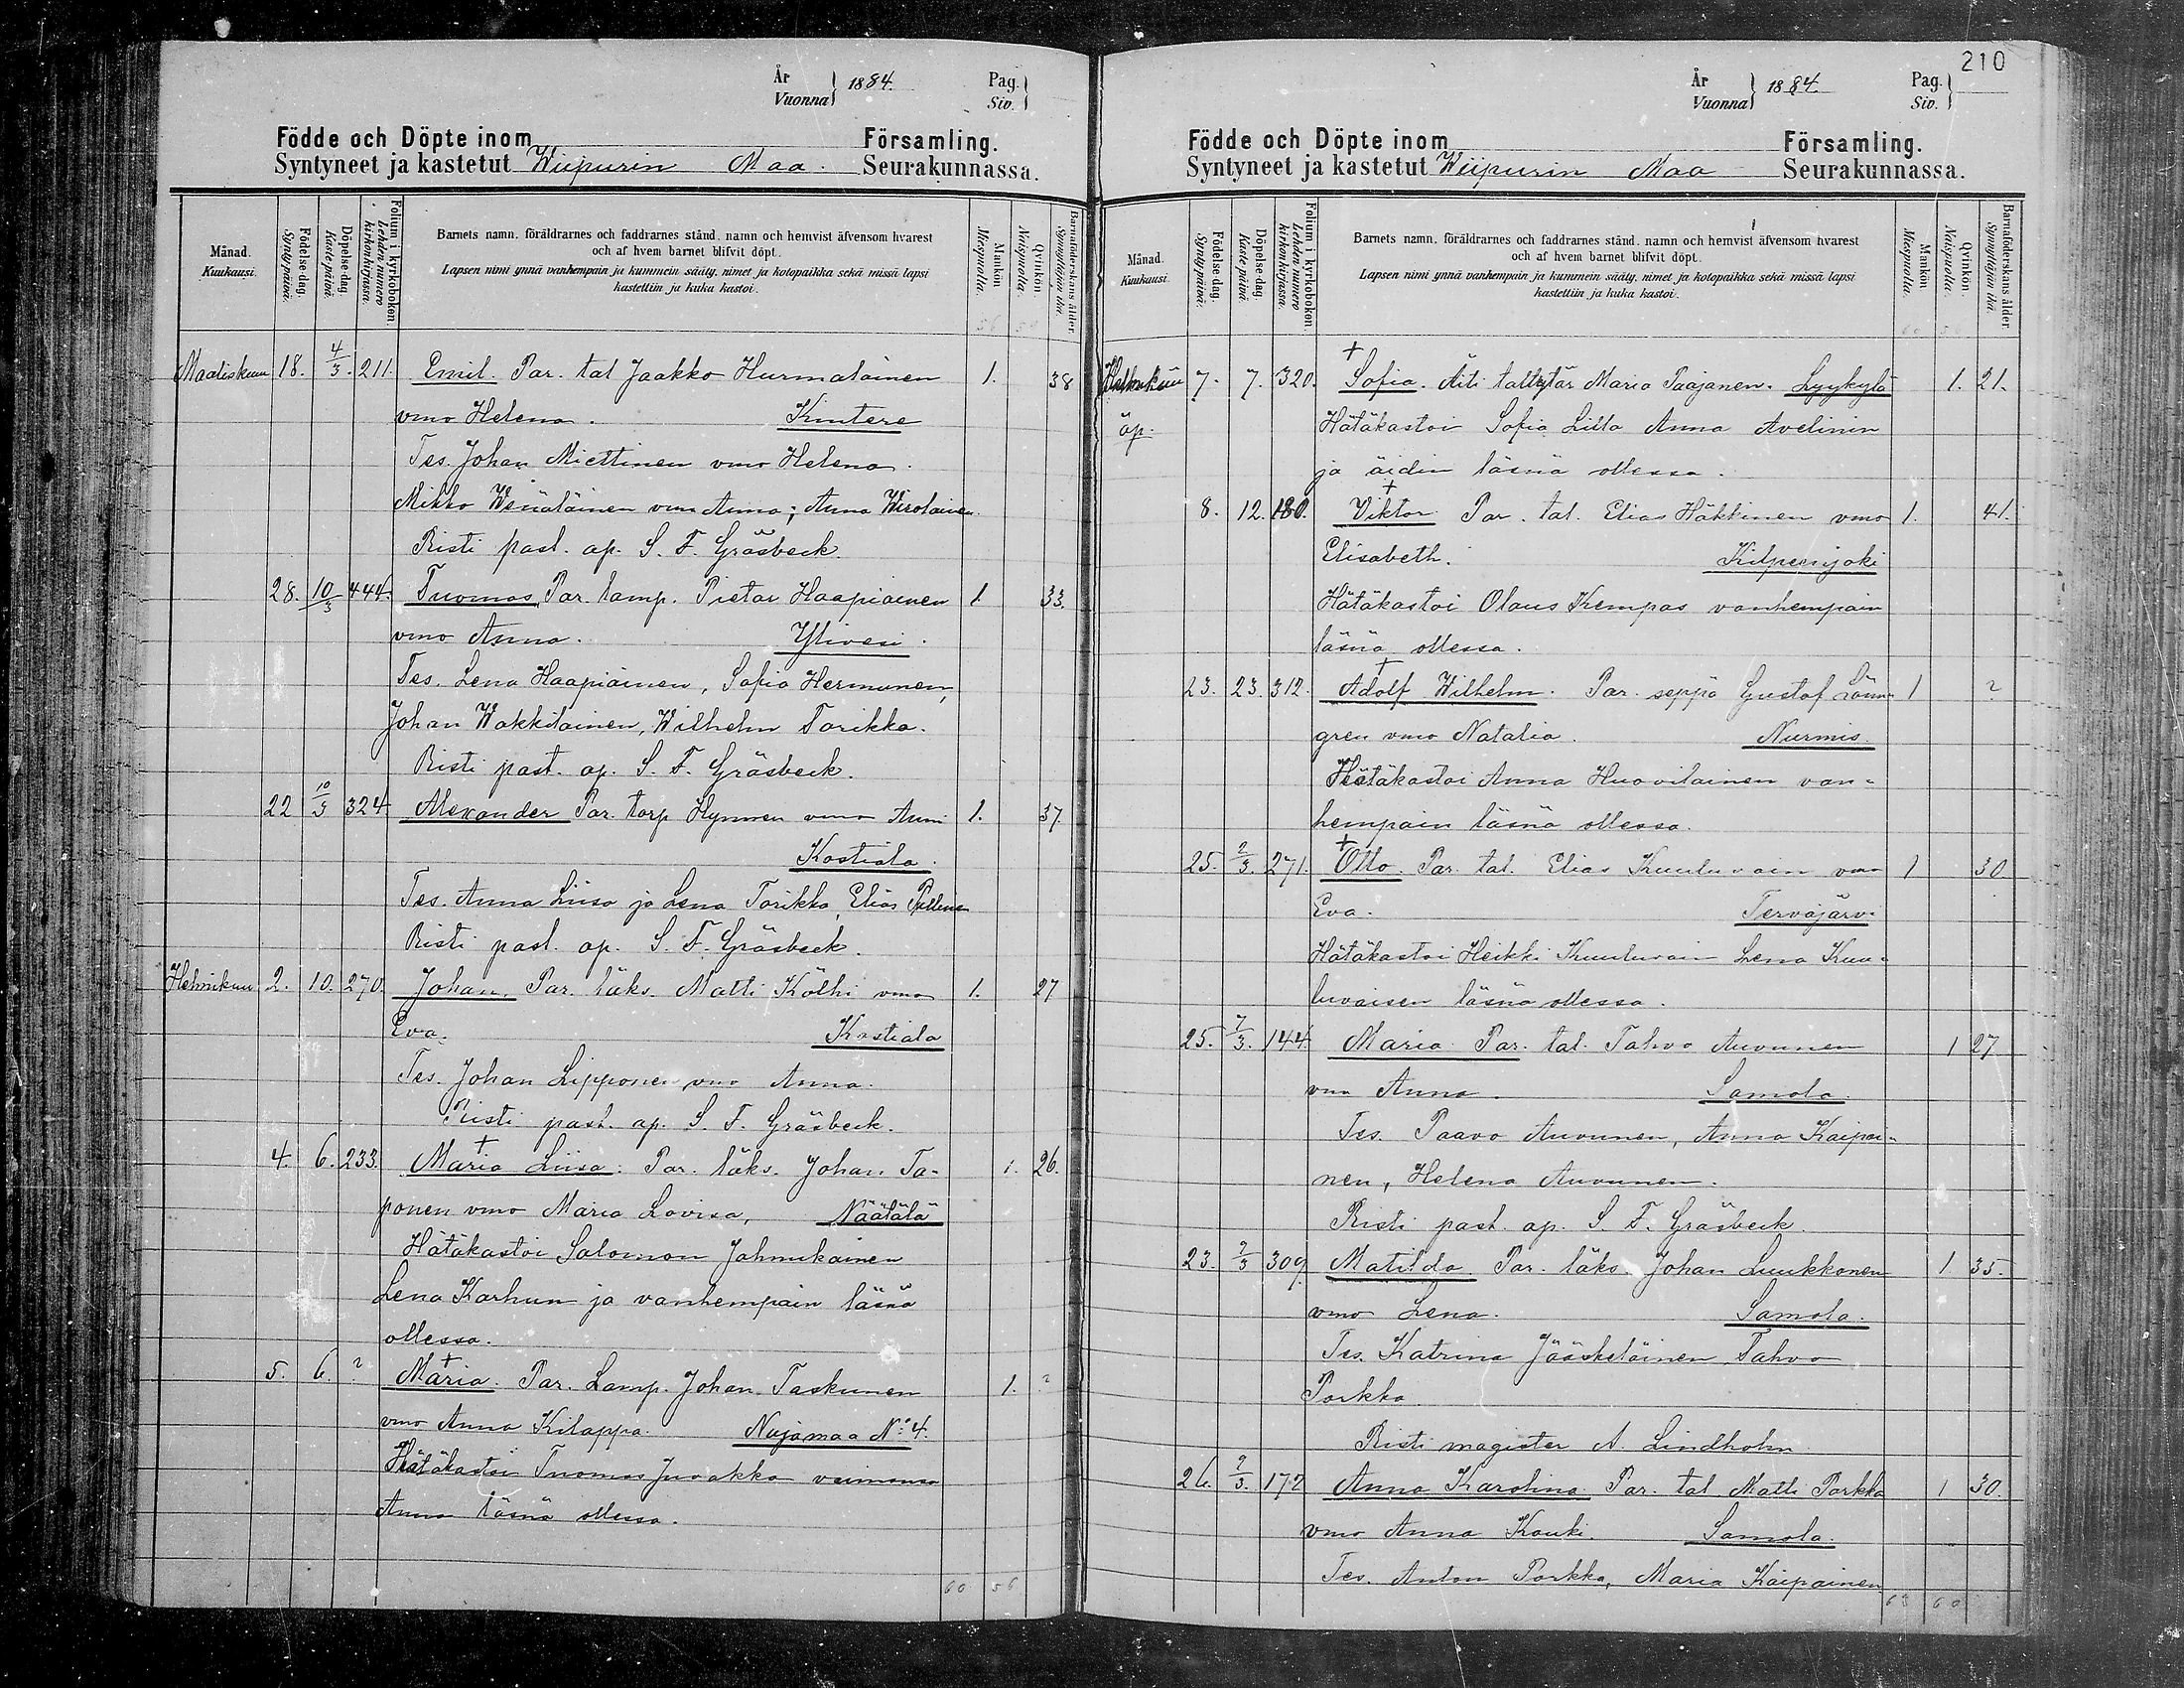 År
Vuonna } 1884.
Pag.
Siv. }
Födde och Döpte inom Församling.
Syntyneet ja kastetut Wiipurin Maa. Seurakunnassa.
Månad.
Kuukausi.
Födelse-dag.
Synty-päivä.
Döpelse-dag.
Kaste-päivä.
Folium i kyrkoboken.
Lehden numero kirkonkirjassa.
Barnets namn, föräldrarnes och faddrarnes stånd, namn och hemvist äfvensom hvarest
och af hvem barnet blifvit döpt.
Lapsen nimi ynnä vanhempain ja kummein sääty, nimet ja kotopaikka sekä missä lapsi
kastettiin ja kuka kastoi.
Mankön.
Miespuolia.
Qvinkön.
Naispuolia.
Barnaföderskans ålder.
Synnyttäjän ikä.
Maaliskuu 18. 4/3. 211. Emil. Par. tal Jaakko Hurmalainen 1. 38
vmo Helena. Kintere
Tes. Johan Miettinen vmo Helena.
Mikko Wenäläinen vmo Anna; Anna Wirolainen.
Risti past. ap. S. F. Gräsbeck.
28. 10/3 444. Tuomas, Par. lamp. Pietar Haapiainen 1 33.
vmo Anna. Ylivesi.
Tes. Lena Haapiainen, Sofia Hermunen,
Johan Wakkilainen, Wilhelm Torikka.
Risti past. ap. S. F. Gräsbeck.
22 10/3 324 Alexander Par. torp Hynnen vmo Anni 1. 37
Kostiala.
Tes. Anna Liisa ja Lena Torikka, Elias Pullinen
Risti past. ap. S. F. Gräsbeck.
Helmikuu 2. 10. 270. Johan, Par. läks. Matti Kölhi vmo 1. 27
Eva. Kostiala
Tes. Johan Lipponen vmo Anna.
Risti past. ap. S. F. Gräsbeck.
4. 6. 233. + Maria Liisa: Par. läks. Johan Ta- 1. 26.
ponen vmo Maria Lovisa, Näätälä
Hätäkastoi Salomon Johnukainen
Lena Karhun ja vanhempain läsnä
ollessa.
5. 6. ? + Maria. Par. Lamp. Johan Taskunen 1. ?
vmo Anna Kilappa. Nujamaa No: 4.
Hätäkastoi Tuomas Juvakka vaimonsa
Anna läsnä ollessa.
60 56
210
År
Vuonna } 1884.
Pag.
Siv. }
Födde och Döpte inom Församling.
Syntyneet ja kastetut Wiipurin Maa Seurakunnassa.
Månad.
Kuukausi.
Födelse-dag.
Synty-päivä.
Döpelse-dag.
Kaste-päivä.
Folium i kyrkoboken.
Lehden numero kirkonkirjassa.
Barnets namn, föräldrarnes och faddrarnes stånd, namn och hemvist äfvensom hvarest
och af hvem barnet blifvit döpt.
Lapsen nimi ynnä vanhempain ja kummein sääty, nimet ja kotopaikka sekä missä lapsi
kastettiin ja kuka kastoi.
Mankön.
Miespuolia.
Qvinkön.
Naispuolia.
Barnaföderskans ålder.
Synnyttäjän ikä.
Helmikuu 7. 7. 320. + Sofia. Äiti tal tytär Maria Paajanen. Lyykylä 1. 21.
äp. Hätäkastoi Sofia Lilla Anna Avelinin
ja äidin läsnä ollessa.
8. 12. 180. + Viktor Par. tal. Elias Häkkinen vmo 1. 41.
Elisabeth. Kilpeenjoki
Hätäkastoi Olaus Kempas vanhempain
läsnä ollessa.
23. 23. 312. + Adolf Wilhelm. Par. seppä Gustaf Lönn- 1 ?
gren vmo Natalia. Nurmis
Hätäkastoi Anna Huovilainen van-
hempain läsnä ollessa.
25. 2/3. 271. + Otto. Par. tal. Elias Kuuluvain vmo 1 30
Eva. Tervajärvi
Hätäkastoi Heikki Kuuluvain Lena Kuu-
luvaisen läsnä ollessa.
25. 7/3. 144. Maria. Par. tal. Tahvo Auvunen 1 27
vmo Anna. Samola.
Tes. Paavo Auvunen, Anna Kaipai-
nen, Helena Auvunen.
Risti past. ap. S F. Gräsbeck
23. 2/3 309 Matilda. Par. läks. Johan Luukkonen 1 35.
vmo Lena. Samola.
Tes. Katrina Jääskeläinen, Tahvo
Porkka
Risti magister A. Lindholm
26. 2/3. 172 Anna Karolina. Par. tal. Matti Porkka 1 30.
vmo Anna Kouki. Samola.
Tes. Anton Porkka, Maria Kaipainen
63 60